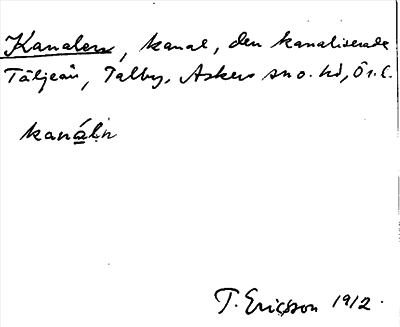 Kanalen, kanal, den kanaliserade
Täljeån, Talby, Askers sn o. hd, Ör. l.
kanáln
T. Ericsson 1912.